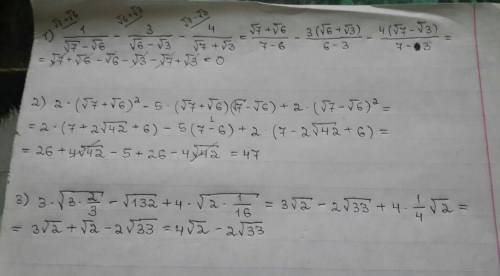 √7+√6 √6+√3 √7-√3
1) 1/(√7-√6) - 3/(√6-√3) - 4/(√7+√3) = (√7+√6)/(7-6) - 3(√6+√3)/(6-3) - 4(√7-√3)/(7-3) =
= √7+√6-√6-√3-√7+√3 = 0
2) 2·(√7+√6)² - 5·(√7+√6)(√7-√6) + 2·(√7-√6)² =
= 2·(7+2√42+6) - 5(7-6) + 2 (7-2√42+6) =
= 26+4√42 - 5 + 26 - 4√42 = 47
3) 3·√(3·2/3) - √132 + 4·√(2·1/16) = 3√2 - 2√33 + 4·1/4√2 =
= 3√2+√2-2√33 = 4√2-2√33